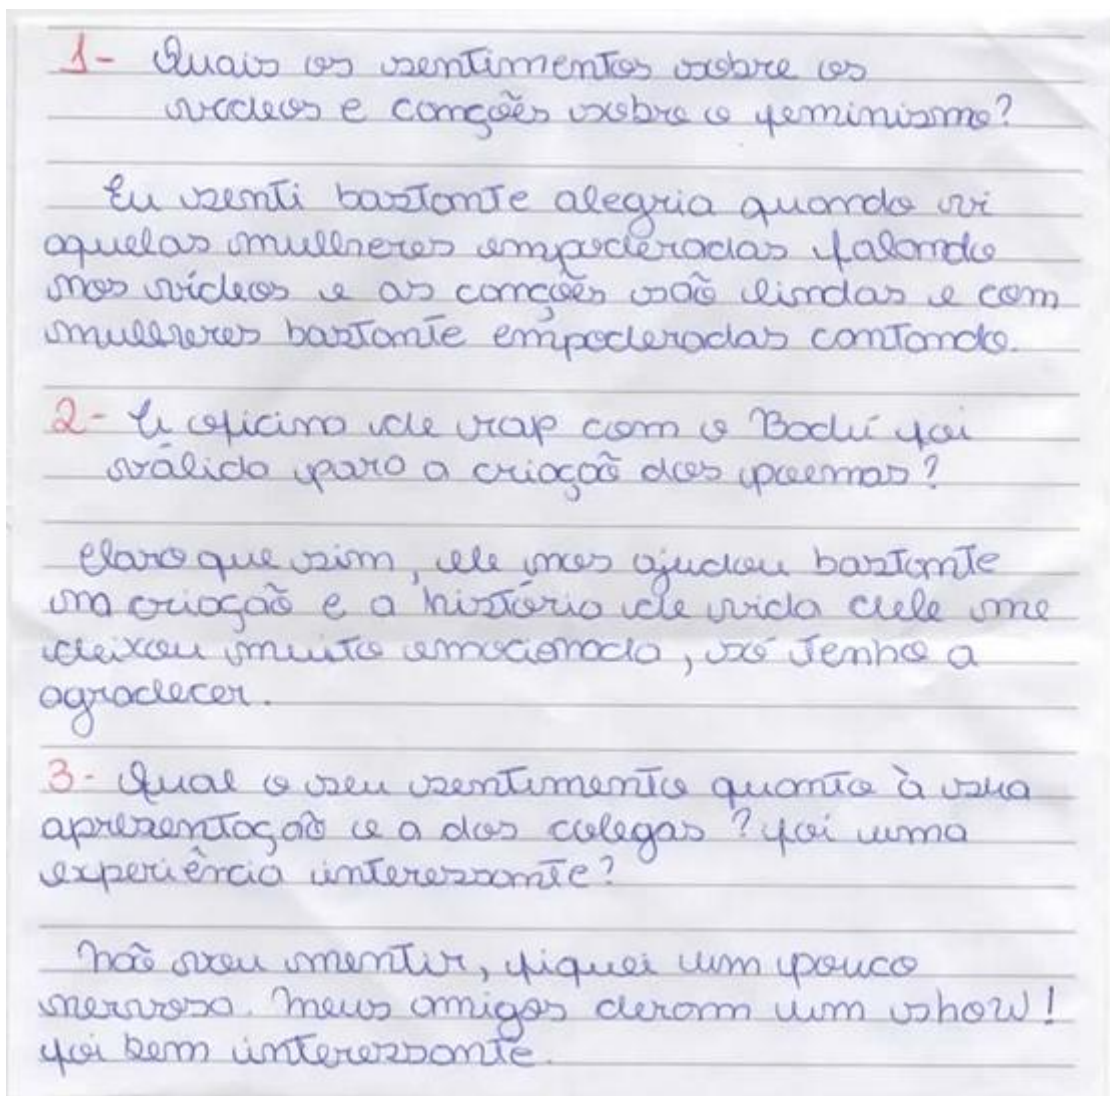 1- Quais os sentimentos sobre os
vídeos e canções sobre o feminismo?
Eu senti bastante alegria quando vi
aquelas mulheres empoderadas falando
nos vídeos e as canções são lindas e com
mulheres bastante empoderadas cantando.
2- A oficina de rap com o Badú foi
válida para a criação dos poemas?
Claro que sim, ele nos ajudou bastante
na criação e a história de vida dele me
deixou muito emocionada, só tenho a
agradecer.
3- Qual o seu sentimento quanto à sua
apresentação e a dos colegas? Foi uma
experiência interessante?
Não vou mentir, fiquei um pouco
nervosa. Meus amigos deram um show!
Foi bem interessante.